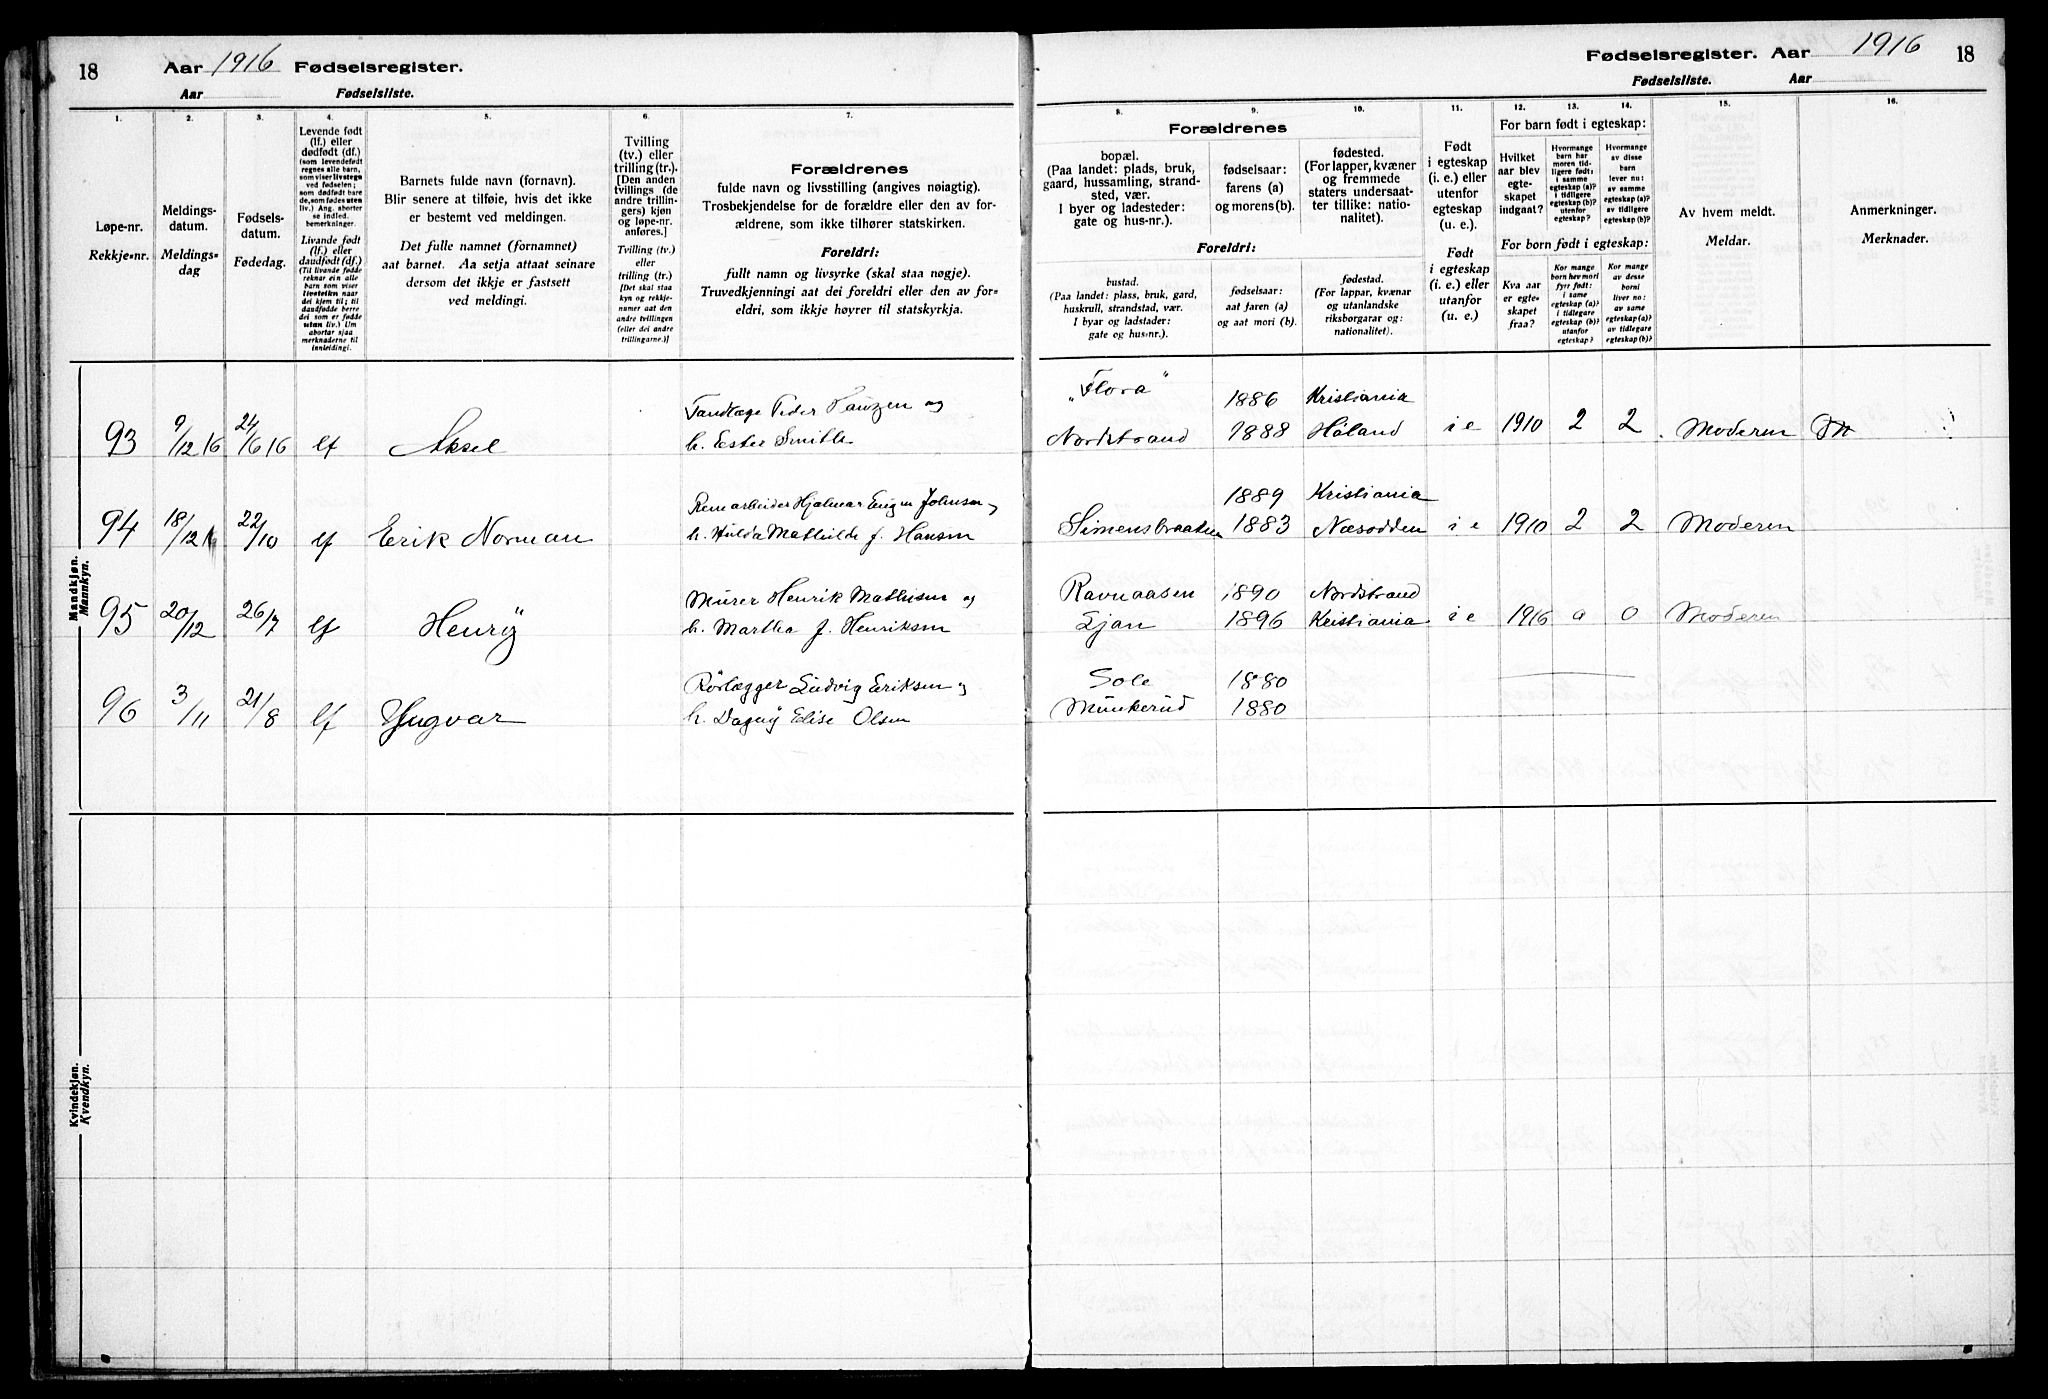 18 Aar 1916 Fødselsregister.
Aar Fødselsliste.
Fødselsregister. Aar 1916 18
Fødselsliste. Aar
1. 2. 3. 4. 5. 6. 7. 8. 9. 10. 11. 12. 13. 14. 15. 16.
Løpe-nr.
Rekkje-nr.
Meldings-
datum.
Meldings-
dag
Fødsels-
datum.
Fødedag.
Levende født
(lf.) eller
dødfødt (df.)
(som levendefødt
regnes alle barn,
som viser livstegn
ved fødselen;
som dødfødt bare
de, som fødes uten
liv.) Ang. aborter
se indled.
bemerkninger.
Livande født
(lf.) eller
daudfødt (df.)
(Til livande fødde
reknar ein alle
barn som viser
livsteikn naar
dei kjem til; til
daudfødde berre
dei som er fødde
utan liv.) Um
abortar sjaa
merknaderne til
innleidingi.
Barnets fulde navn (fornavn).
Blir senere at tilføie, hvis det ikke
er bestemt ved meldingen.
Det fulle namnet (fornamnet)
aat barnet. Aa setja attaat seinare
dersom det ikkje er fastsett
ved meldingi.
Tvilling
(tv.) eller
trilling (tr.).
[Den anden
tvillings (de
andre trillin-
gers) kjøn
og løpe-nr.
anføres.]
Tvilling (tv.)
eller
trilling (tr.)
[Det skal staa
kyn og rekkje-
numer aat den
andre tvillingen
(eller dei andre
trillingarne.)]
Forældrenes
fulde navn og livsstilling (angives nøiagtig).
Trosbekjendelse for de forældre eller den av for-
ældrene, som ikke tilhører statskirken.
Foreldri:
fullt namn og livsyrke (skal staa nøgje).
Truvedkjenningi aat dei foreldri eller den av for-
eldri, som ikkje høyrer til statskyrkja.
Forældrenes
bopæl.
(Paa landet: plads, bruk,
gaard, hussamling, strand-
sted, vær.
I byer og ladesteder:
gate og hus-nr.).
fødselsaar:
farens (a)
og morens (b).
fødested.
(For lapper, kvæner
og fremmede
staters undersaat-
ter tillike: natio-
nalitet).
Foreldri:
bustad.
(Paa landet: plass, bruk, gard,
huskrull, strandstad, vær.
I byar og ladstader:
gate og hus-nr.).
fødselsaar:
aat faren (a)
og aat mori (b).
fødestad.
(For lappar, kvænar
og utanlandske
riksborgarar og:
nationalitet).
Født
i egteskap
(i. e.) eller
utenfor
egteskap
(u. e.).
Født
i egteskap
(i. e.) eller
utanfor
(u. e.).
For barn født i egteskap:
Hvilket
aar blev
egte-
skapet
indgaat?
Hvormange
barn har
moren tid-
ligere født:
i samme
egteskap (a)?
i tidligere
egteskap (b)?
utenfor
egteskap?
Hvormange
av disse
barn
lever nu:
av samme
egteskap (a)?
av tidligere
egteskap (b)?
For born født i egteskap:
Kva aar
er egte-
skapet
fraa?
Kor mange
born hev mori
fyrr født:
i same
egteskap (a)?
i tidlegare
egteskap (b)?
utanfor
egteskap?
Kor mange
av desse
borni
liver no:
av same
egteskap (a)?
av tidlegare
egteskap (b)?
Av hvem meldt.
Meldar.
Anmerkninger.
Merknader.
Mandkjøn.
Mannkyn.
93 9/12 16 24/6 16 lf Aksel
Tandlæge Peder Pauzen og
h. Ester Smith
„Flora" 1886 Kristiania
Nordstrand 1888 Høland i e 1910 2 2 Moderen
94 18/12 22/10 lf Erik Norman
Remarbeider Hjalmar Eugen Johnsen,
h. Hulda Mathilde f. Hansen
1889 Kristiania
Simensbraaten 1883 Næsodden i e 1910 2 2 Moderen
95 20/12 26/7 lf Henry
Murer Henrik Mathisen og
h. Martha f. Henriksen
Ravnaasen 1890 Nordstrand
Ljan 1896 Kristiania i e 1916 a 0 Moderen
96 3/11 21/8 lf Yngvar
Rørlægger Ludvig Eriksen og
h. Dagny Elise Olsen
Sole 1880
Munkerud 1880
Kvindekjøn.
Kvendkyn.